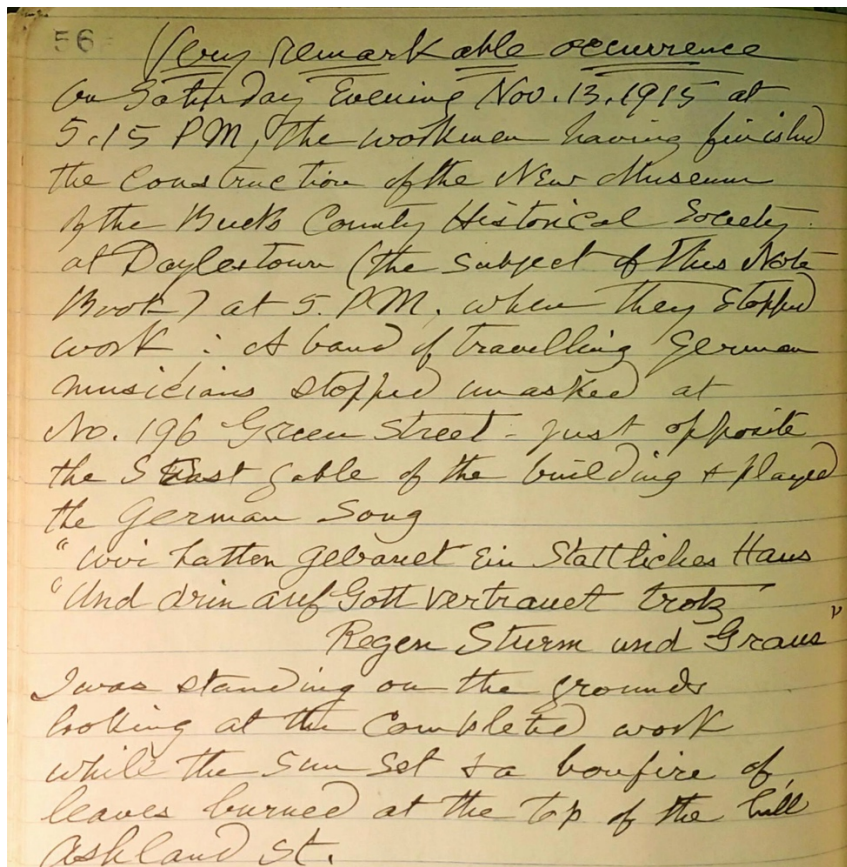 56
Very remarkable occurrence
On Saturday Evening Nov. 13. 1915 at
5.15 PM, the workmen having finished
the construction of the New Museum
of the Bucks County Historical Society
at Doylestown (the subject of this Note
Book) at 5. P.M. when they stopped
work : A band of travelling German
musicians stopped unasked at
No. 196 Green Street - just opposite
the S East gable of the building & played
the German Song
"Wir hatten gebauet Ein Stattliches Haus
"Und drin auf Gott vertrauet trotz
Regen Sturm und Graus"
I was standing on the grounds
looking at the completed work
while the Sun Set & a bonfire of
leaves burned at the top of the hill
Ashland St.